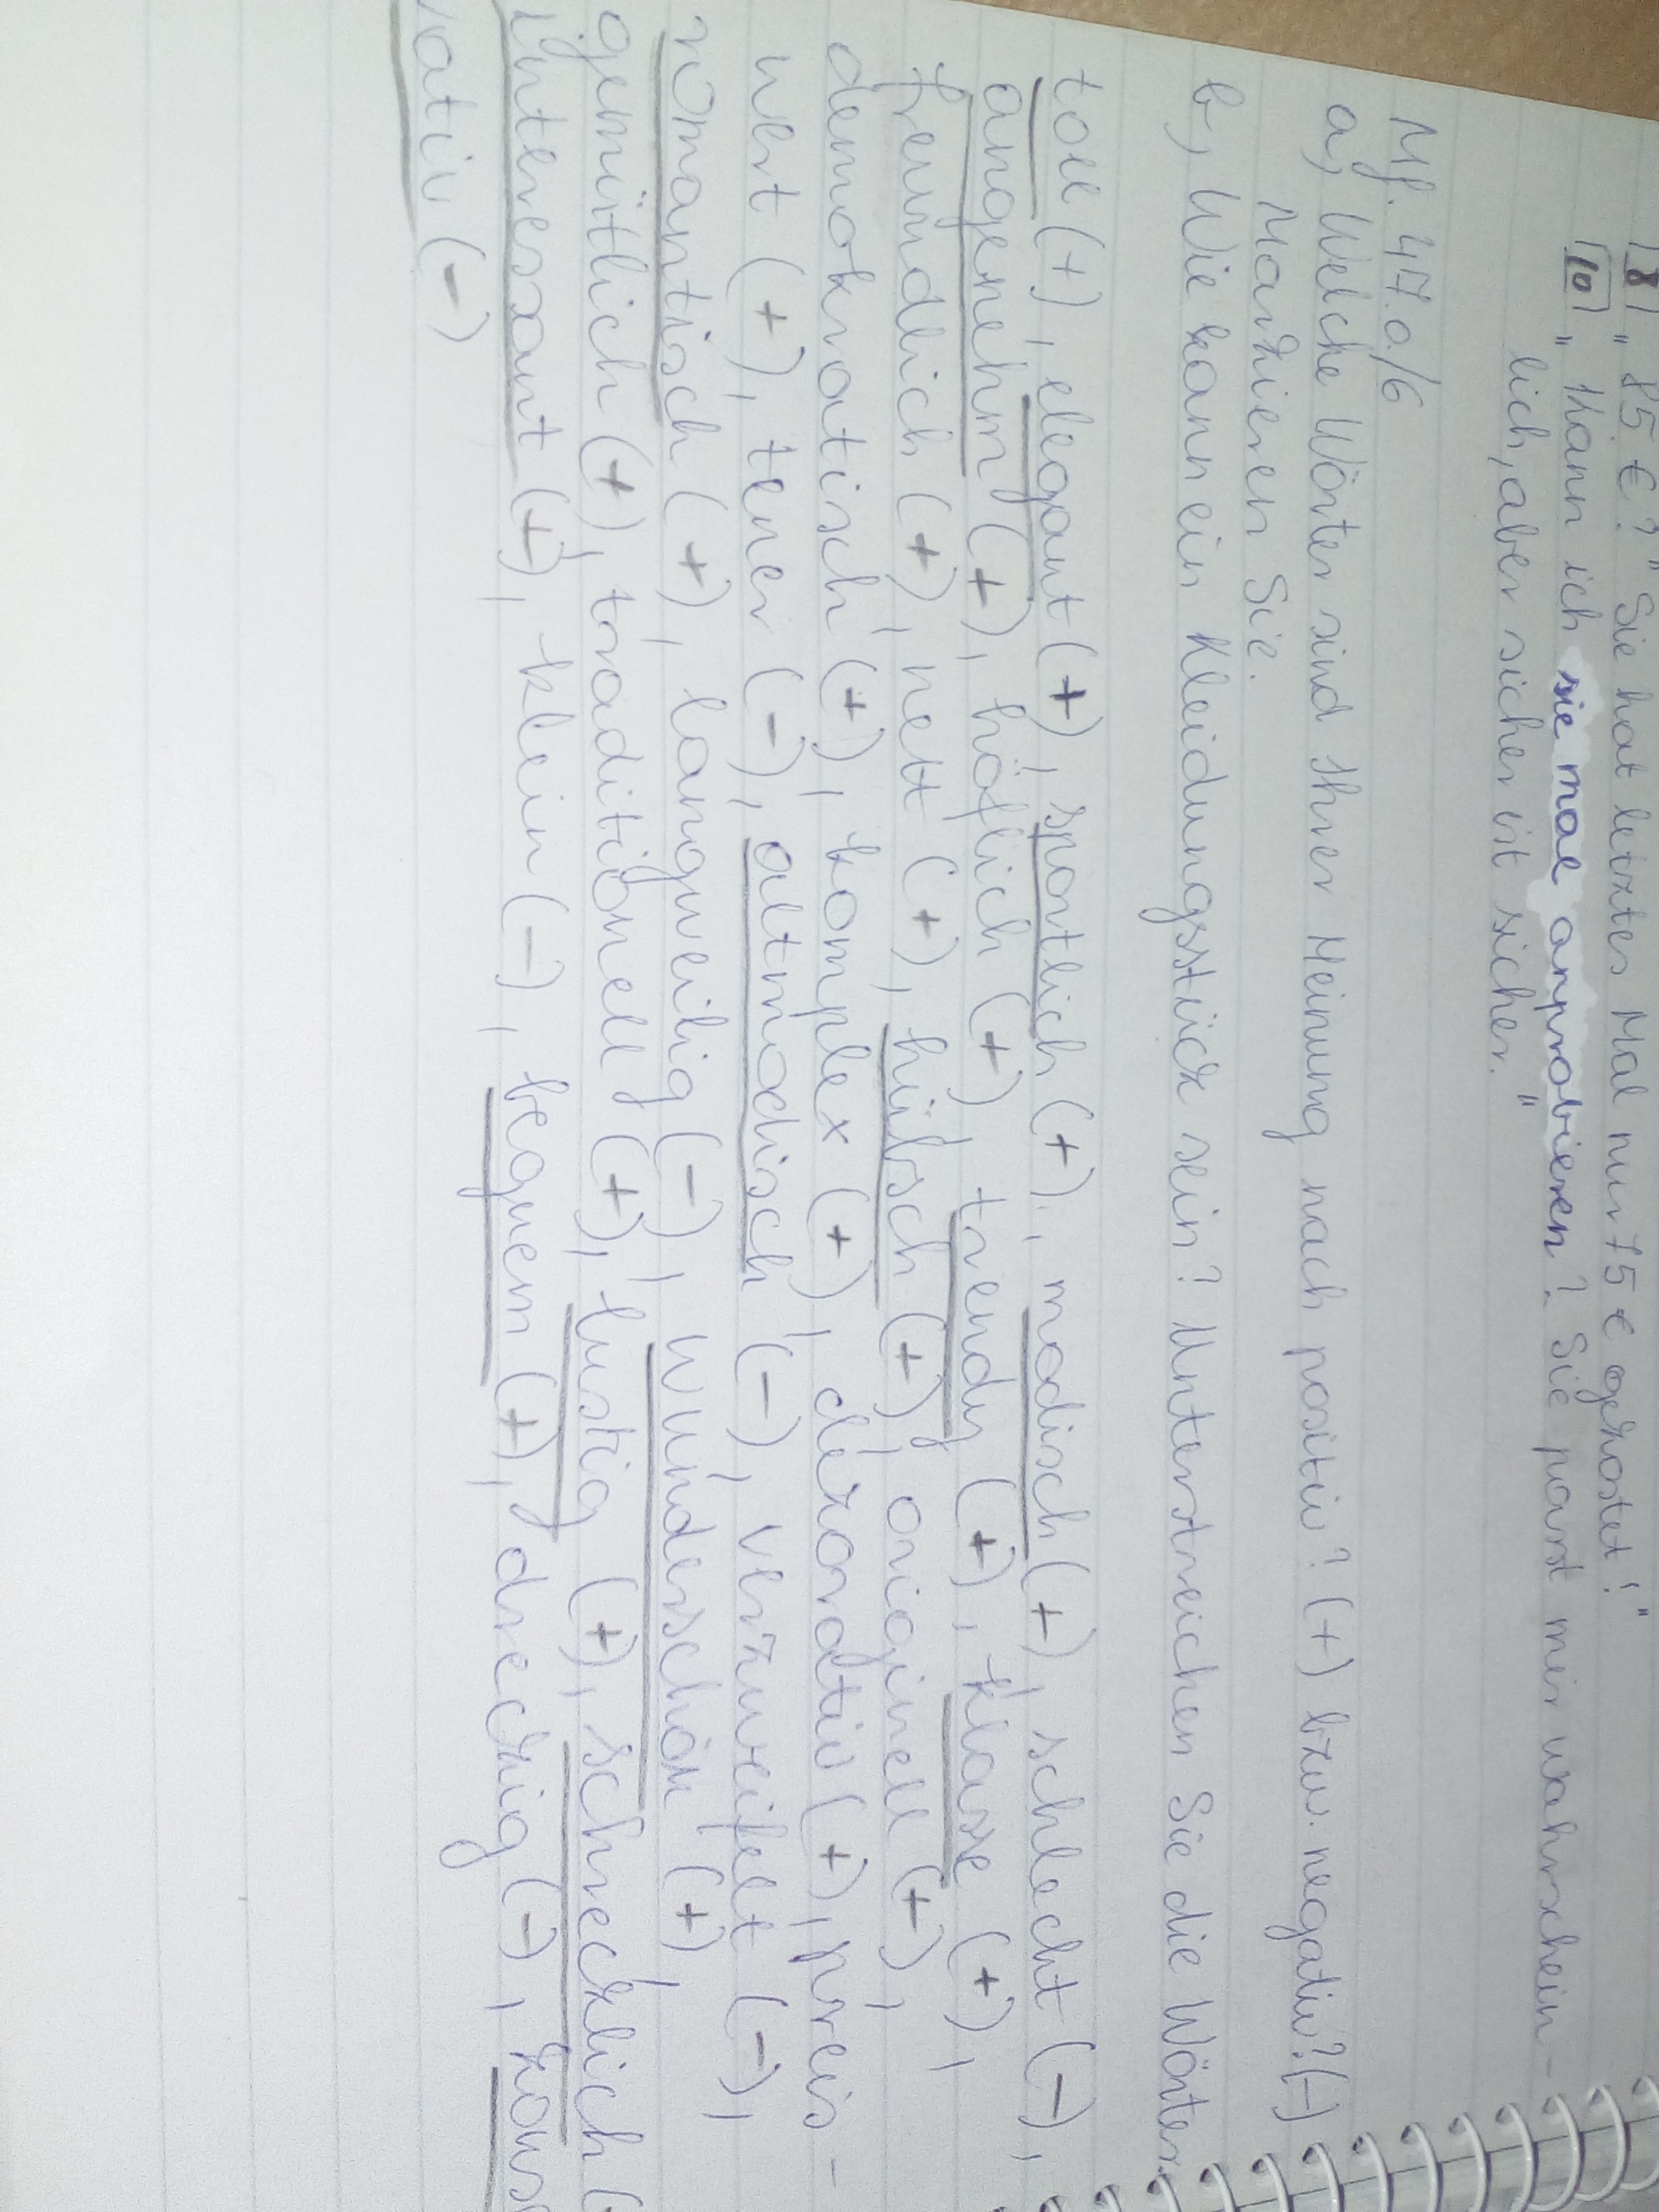 8 „85 €?" Sie hat letztes Mal nur 75 € gekostet!"
10 „Kann ich sie mal anprobieren? Sie passt mir wahrschein-
lich, aber sicher ist sicher."
47.o./6
a, Welche Wörter sind Ihrer Meinung nach positiv? (+) bzw. negativ? (-)
Markieren Sie.
b, Wie kann ein Kleidungsstück sein? Unterstreichen Sie die Wörter.
toll (+), elegant (+), sportlich (+), modisch (+), schlecht (-),
angenehm (+), höflich (+), trendy (+), klasse (+),
freundlich (+), nett (+), hübsch (+), originell (+),
demokratisch (+), komplex (+), dekorativ (+), preis-
wert (+), teuer (-), altmodisch (-), verzweifelt (-),
romantisch (+), langweilig (-), wunderschön (+),
gemütlich (+), traditionell (+), lustig (+), schrecklich (-
interessant (+), klein (-), bequem (+), dreckig (-), konser
vativ (-)